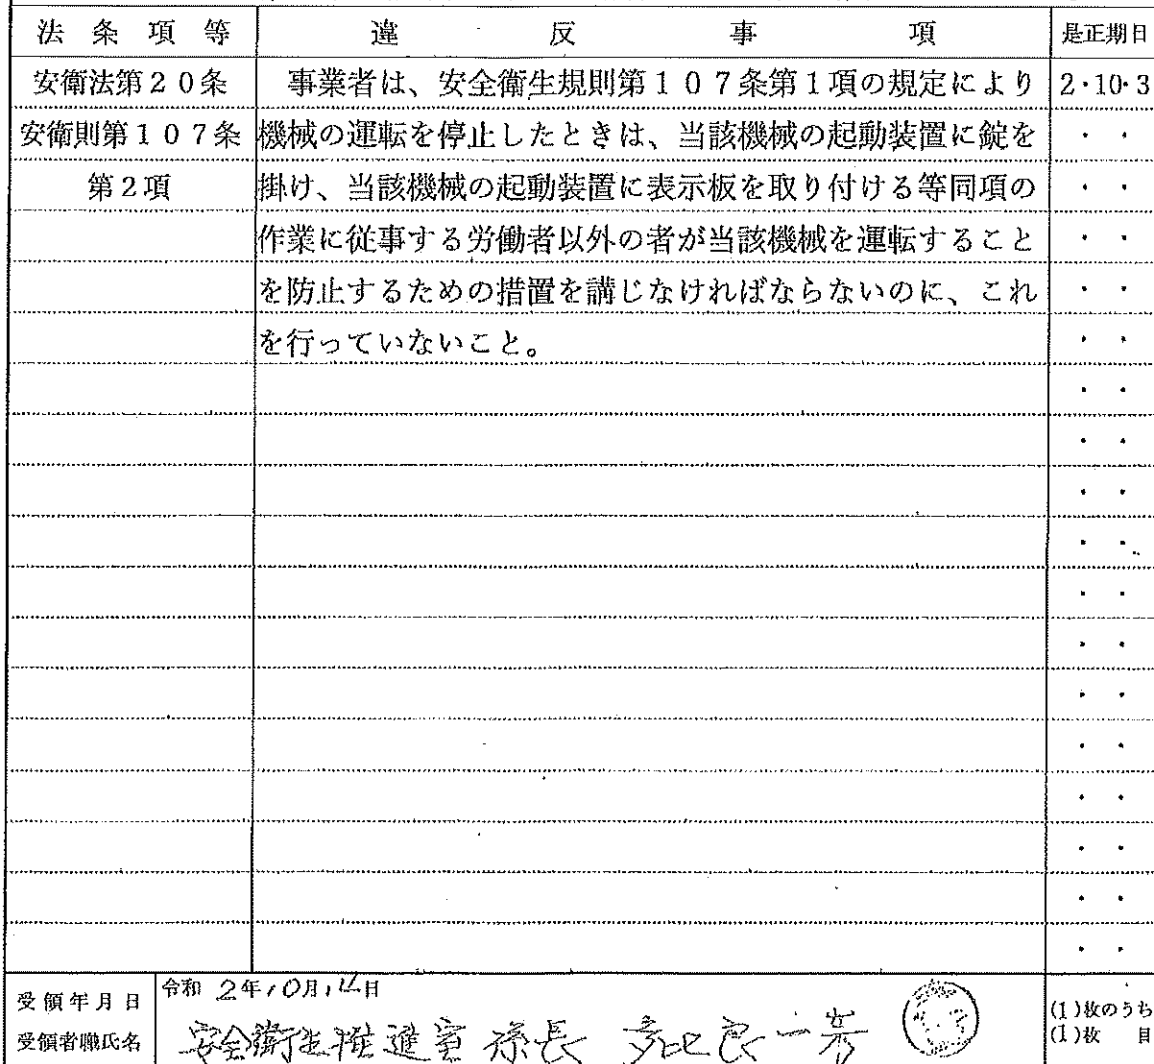 法条項等 違反事項 是正期日
安衛法第２０条 事業者は、安全衛生規則第１０７条第１項の規定により 2・10・3
安衛則第１０７条 機械の運転を停止したときは、当該機械の起動装置に錠を ・ ・
第２項 掛け、当該機械の起動装置に表示板を取り付ける等同項の ・ ・
作業に従事する労働者以外の者が当該機械を運転すること ・ ・
を防止するための措置を講じなければならないのに、これ ・ ・
を行っていないこと。 ・ ・
受領年月日 令和 2年10月 日
受領者職氏名 安全衛生推進室 係長
(1)枚のうち
(1)枚 目